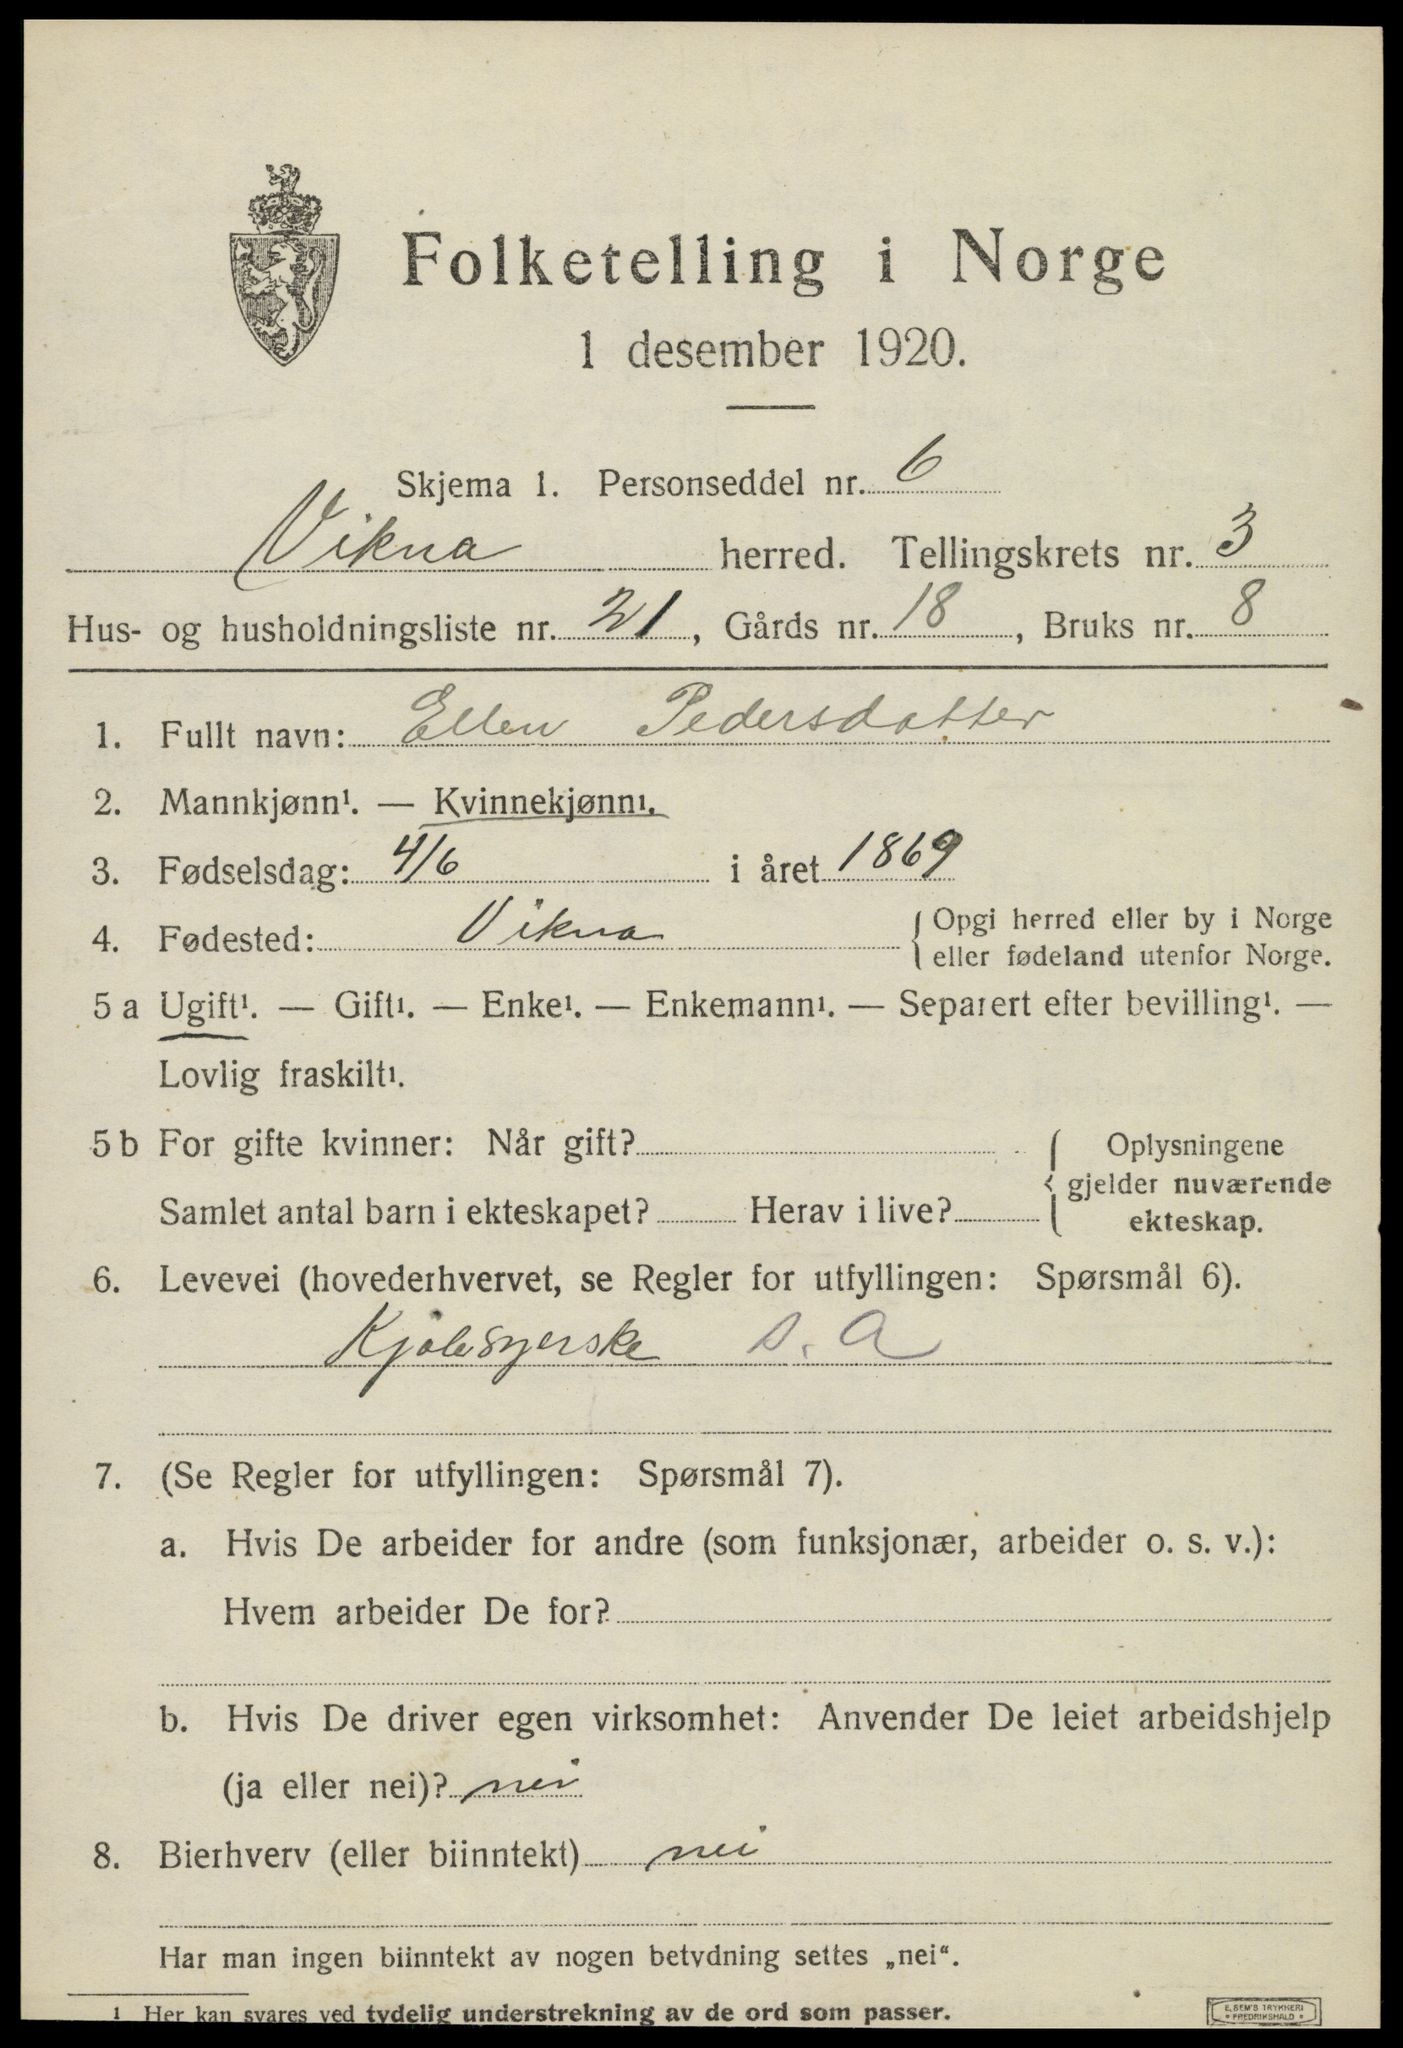 Folketelling i Norge
1 desember 1920.
Skjema 1. Personseddel nr. 6
Vikna herred. Tellingskrets nr. 3
Hus- og husholdningsliste nr. 21, Gårds nr. 18, Bruks nr. 8
1. Fullt navn: Ellen Pedersdatter
2. Mannkjønn¹. — Kvinnekjønn¹.
3. Fødselsdag: 4/6 i året 1869
4. Fødested: Vikna { Opgi herred eller by i Norge
eller fødeland utenfor Norge.
5 a Ugift¹. — Gift¹. — Enke¹. — Enkemann¹. — Separert efter bevilling¹. —
Lovlig fraskilt¹.
5 b For gifte kvinner: Når gift?
Samlet antal barn i ekteskapet? Herav i live?
{ Oplysningene
gjelder nuværende
ekteskap.
6. Levevei (hovederhvervet, se Regler for utfyllingen: Spørsmål 6).
Kjolesyerske s. A
7. (Se Regler for utfyllingen: Spørsmål 7).
a. Hvis De arbeider for andre (som funksjonær, arbeider o. s. v.):
Hvem arbeider De for?
b. Hvis De driver egen virksomhet: Anvender De leiet arbeidshjelp
(ja eller nei)? nei
8. Bierhverv (eller biinntekt) nei
Har man ingen biinntekt av nogen betydning settes „nei“.
1 Her kan svares ved tydelig understrekning av de ord som passer.
E. SEM'S TRYKKERI
• FREDRIKSHALD •